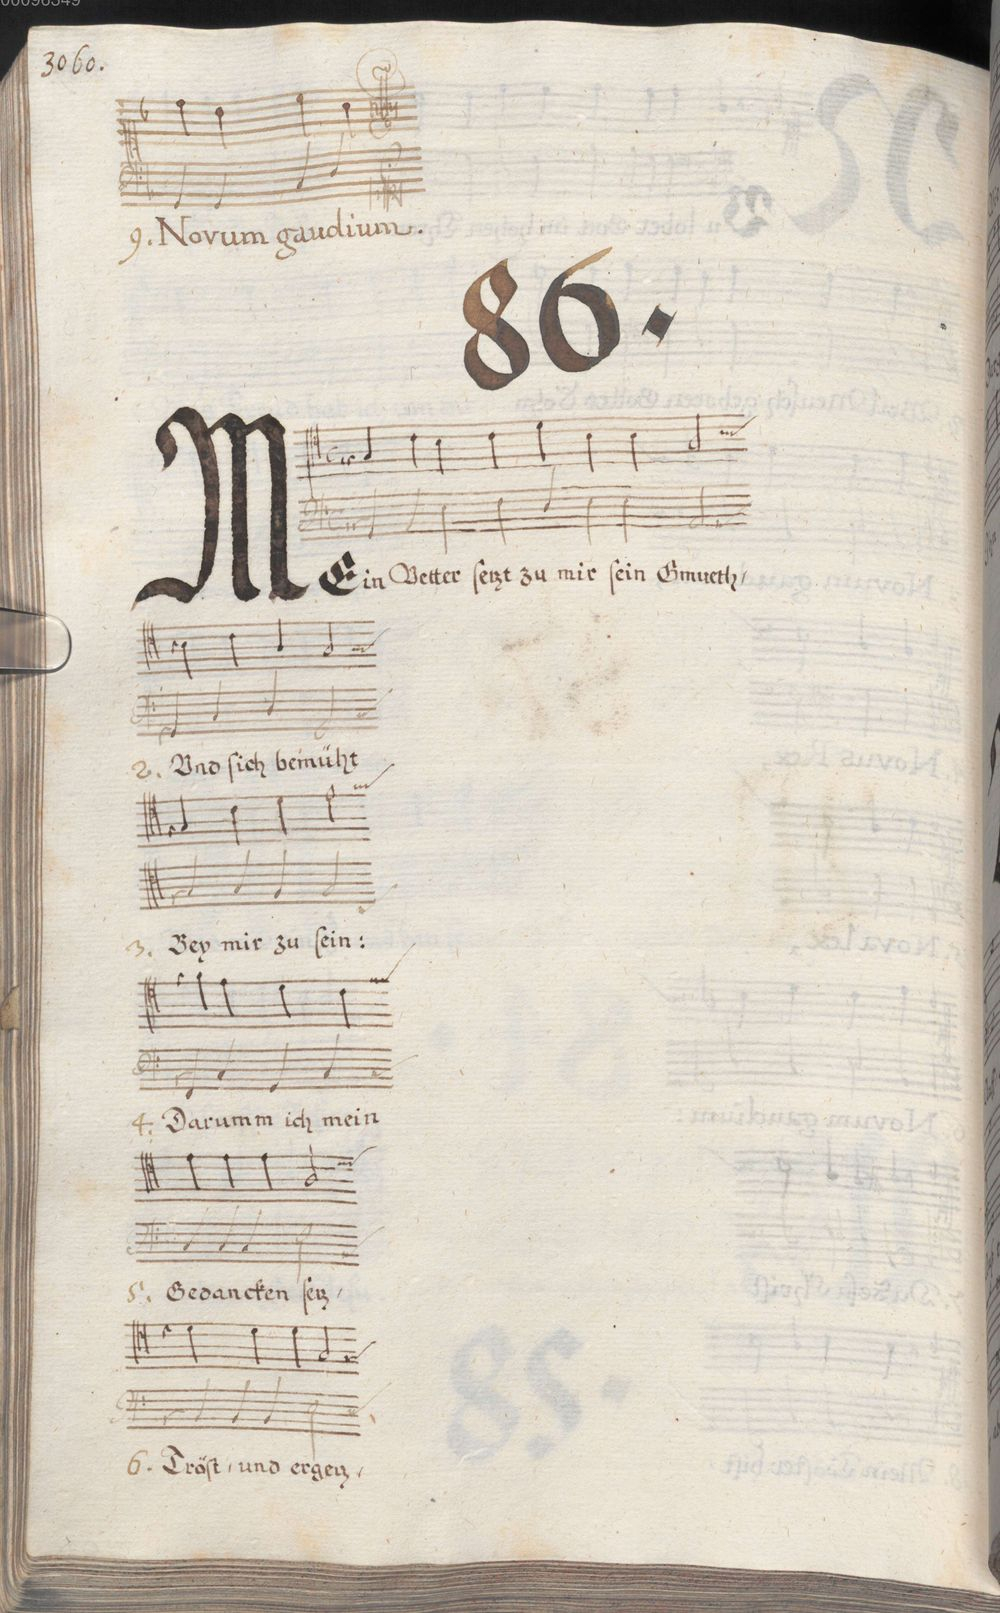 3060.
9. Novum gaudium.
86.
MEin Vetter setzt zu mir sein Gmueth/
2. Vnd sich bemüht
3. Bey mir zu sein:
4. Darumm ich mein
5. Gedancken setz/
6. Tröst/ und ergetz/